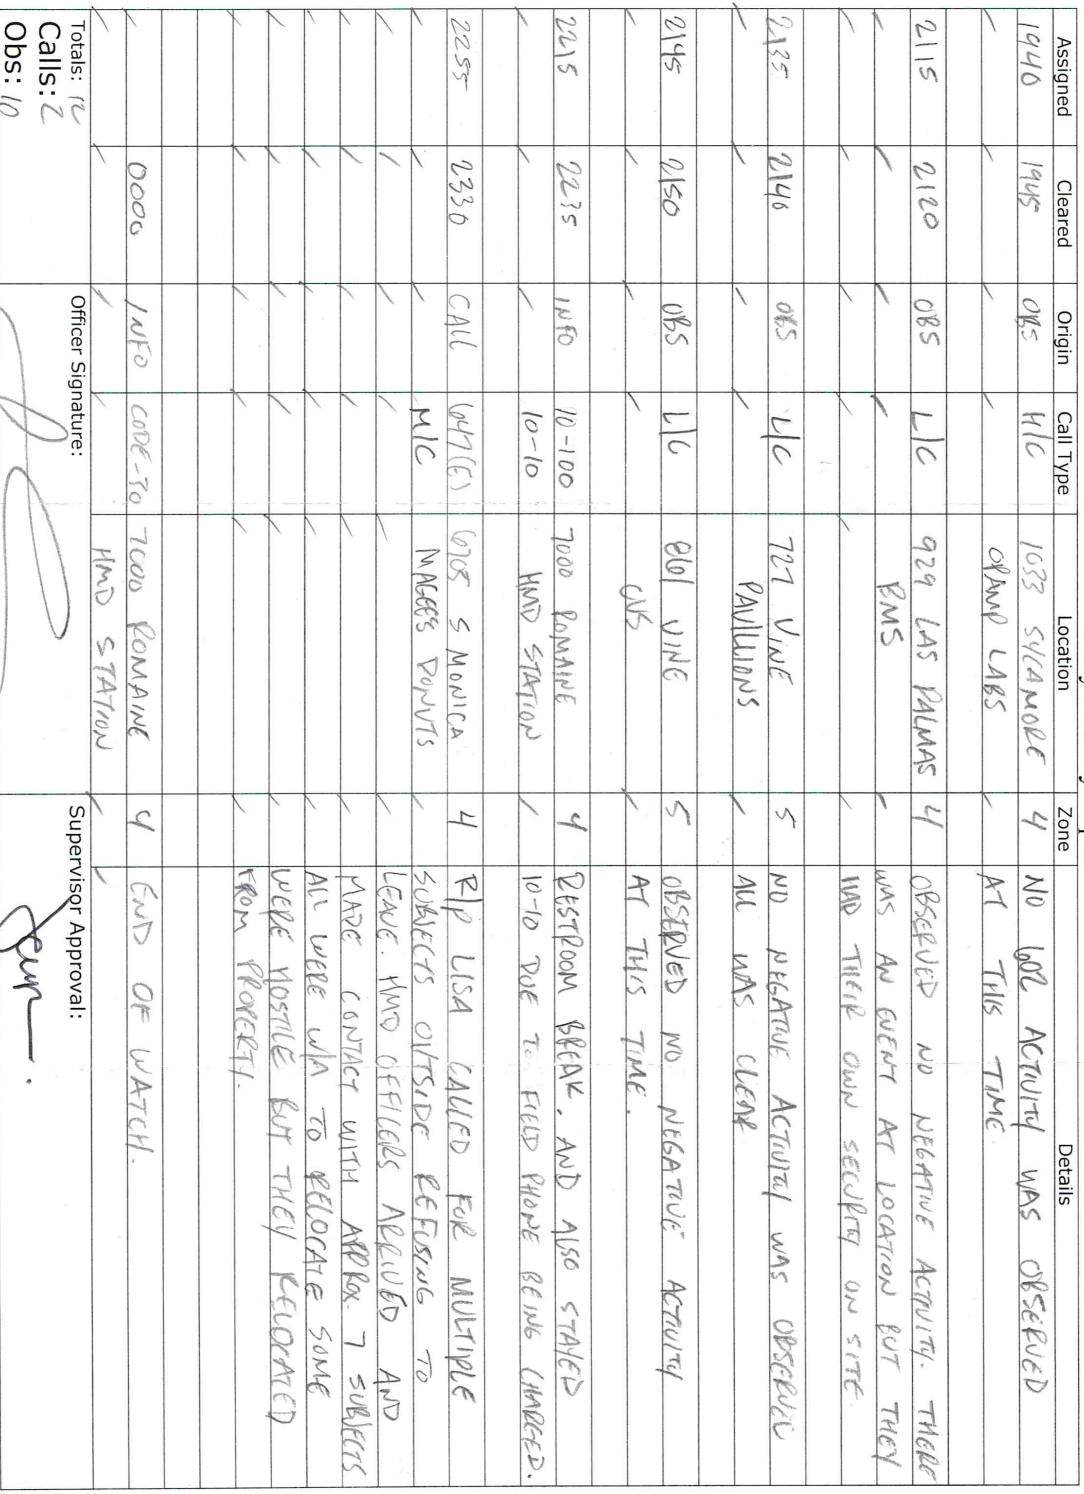 Assigned Cleared Origin Call Type Location Zone Details
1940 1945 OBS H/C 1033 SYCAMORE 4 NO 602 ACTIVITY WAS OBSERVED
OPAMP LABS AT THIS TIME.
2115 2120 OBS L/C 929 LAS PALMAS 4 OBSERVED NO NEGATIVE ACTIVITY. THERE
BMS WAS AN EVENT AT LOCATION BUT THEY
HAD THEIR OWN SECURITY ON SITE.
2135 2140 OBS L/C 727 VINE 5 NO NEGATIVE ACTIVITY WAS OBSERVED
PAVILLIONS ALL WAS CLEAR
2145 2150 OBS L/C 861 VINE 5 OBSERVED NO NEGATIVE ACTIVITY
CVS AT THIS TIME.
2215 2235 INFO 10-100 7000 ROMAINE 4 RESTROOM BREAK. AND ALSO STAYED
10-10 HMD STATION 10-10 DUE TO FIELD PHONE BEING CHARGED.
2255 2330 CALL 647(E) 6705 S MONICA 4 R/P LISA CALLED FOR MULTIPLE
M/C MAGEES DONUTS SUBJECTS OUTSIDE REFUSING TO
LEAVE. HMD OFFICERS ARRIVED AND
MADE CONTACT WITH APPROX. 7 SUBJECTS
ALL WERE W/A TO RELOCATE SOME
WERE HOSTILE BUT THEY RELOCATED
FROM PROPERTY.
0000 INFO CODE-30 7000 ROMAINE 4 END OF WATCH.
HMD STATION
Totals: 12 Officer Signature: Supervisor Approval:
Calls: 2
Obs: 10